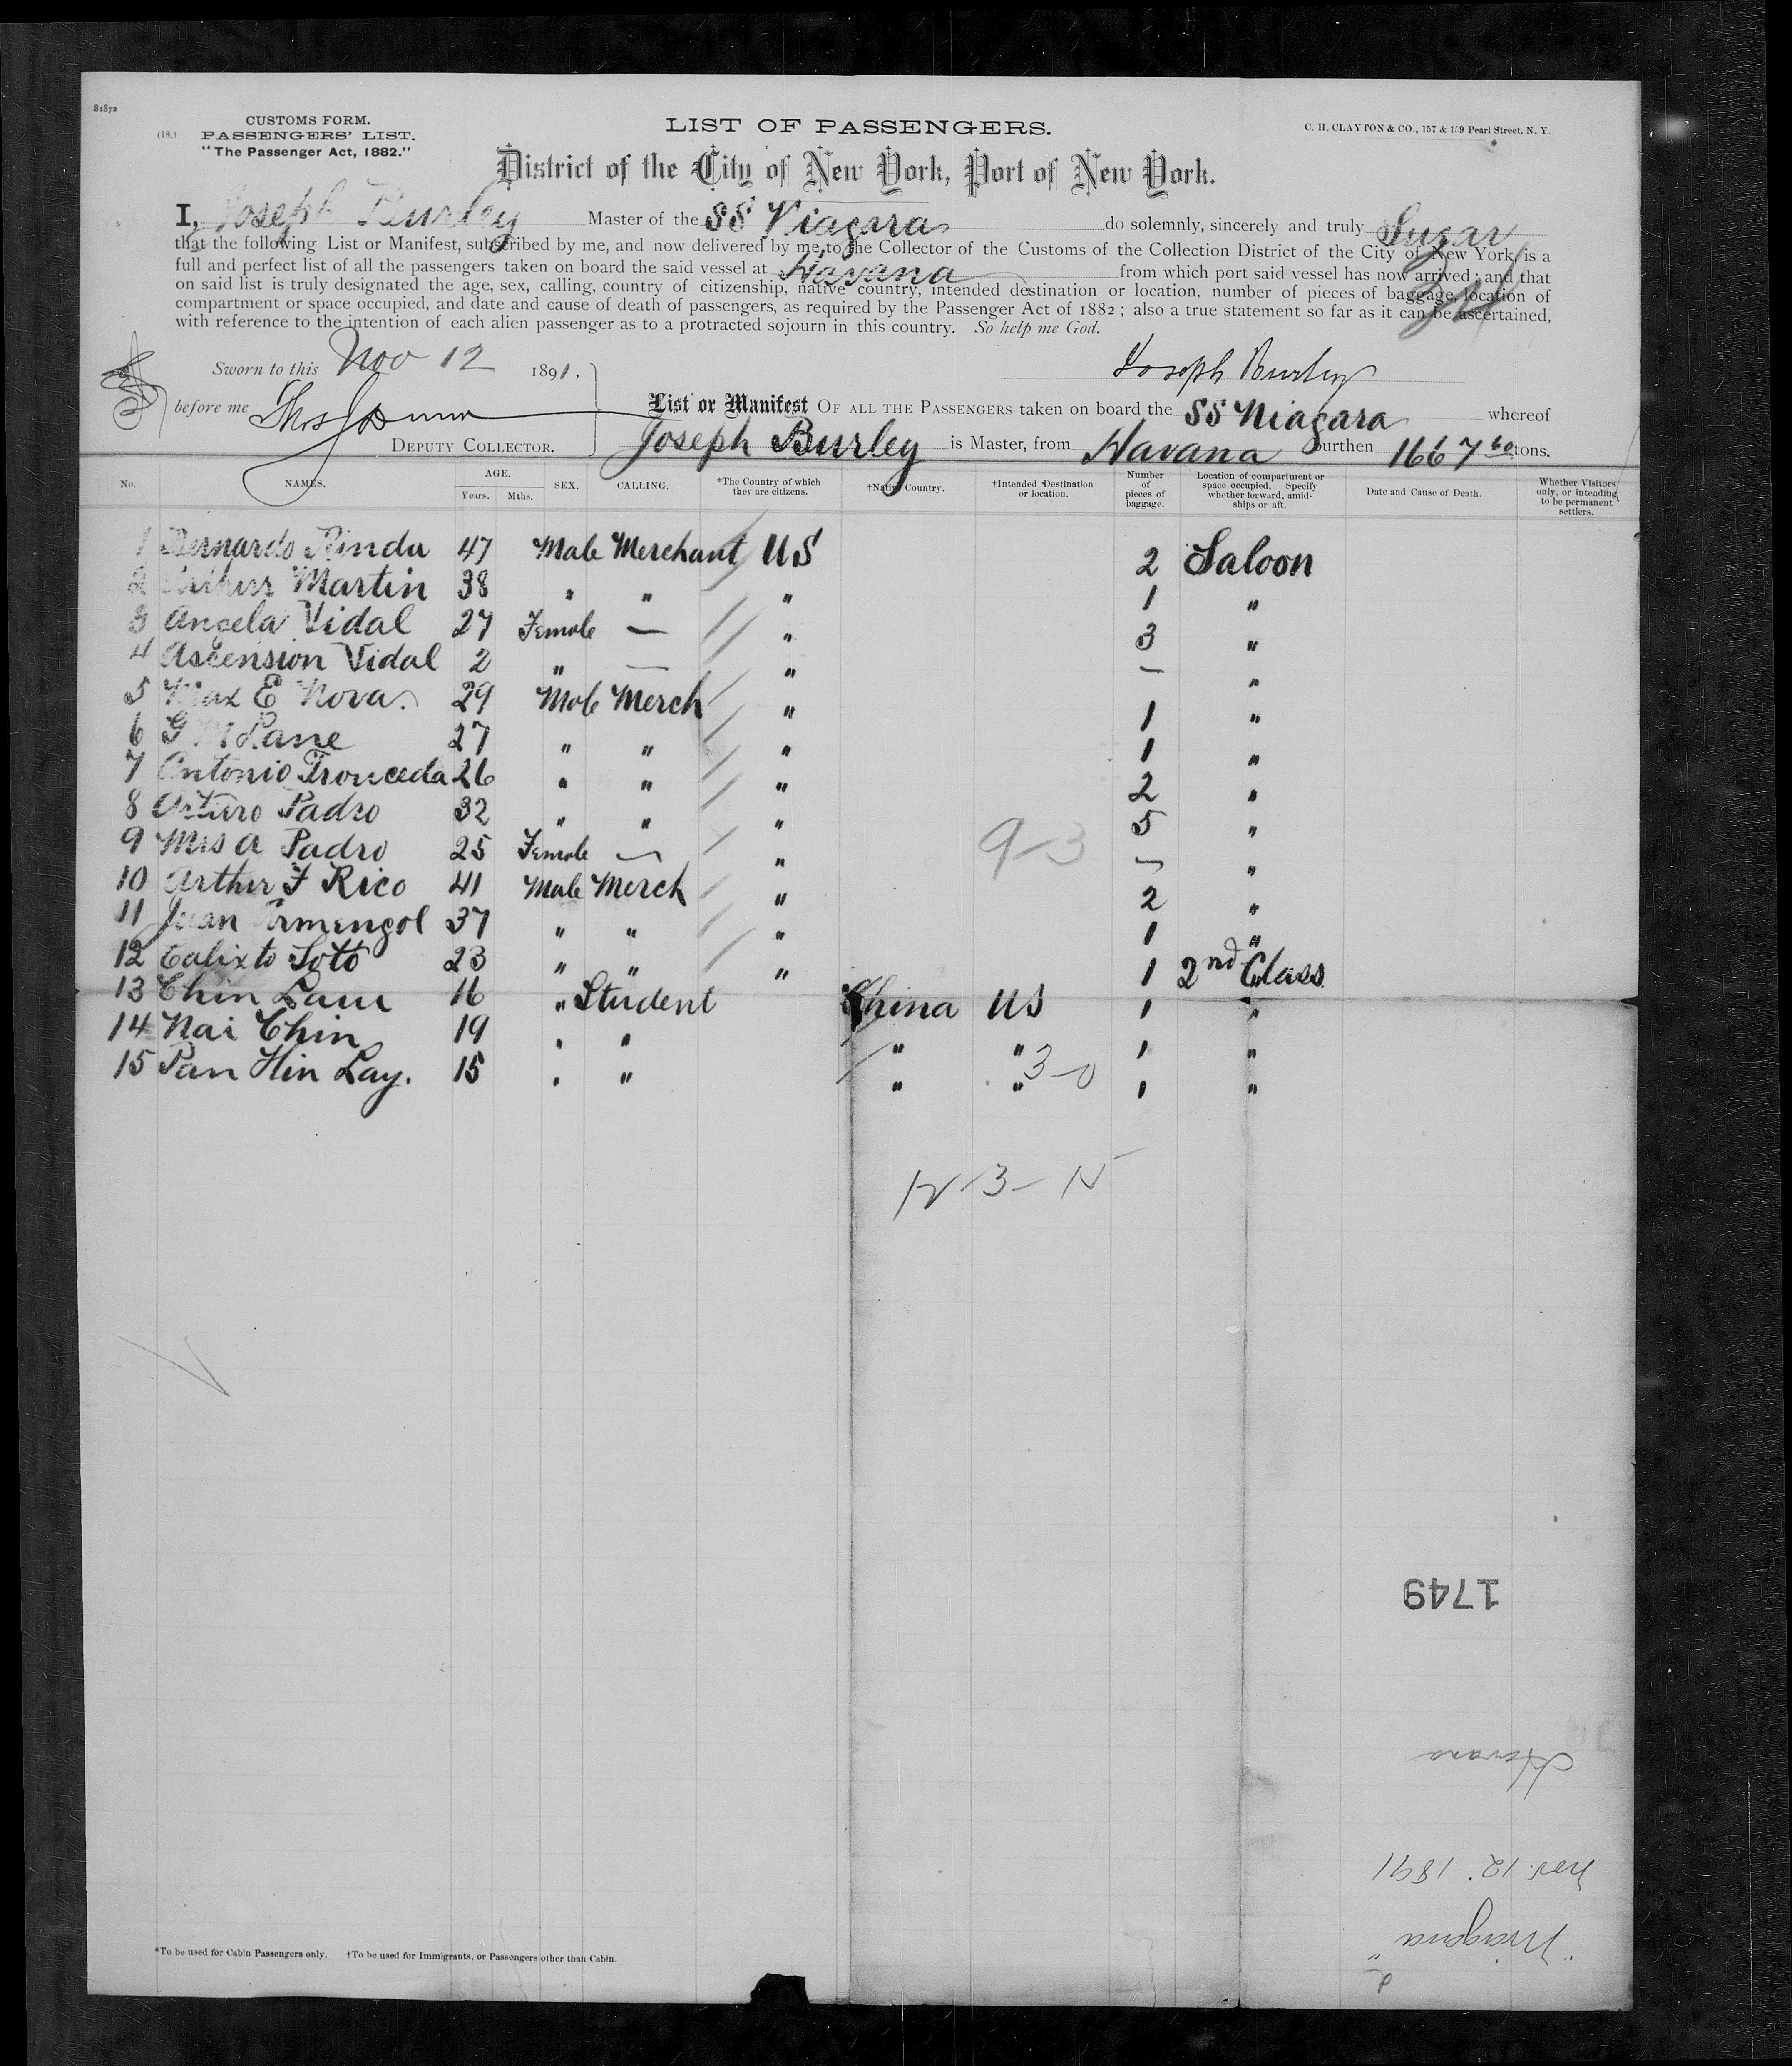 81872
CUSTOMS FORM.
(18.) PASSENGERS' LIST.
"The Passenger Act, 1882."
LIST OF PASSENGERS.
C. H. CLAYTON & CO., 157 & 159 Pearl Street, N. Y.
District of the City of New York, Port of New York.
I, Joseph Burley Master of the SS Niagara do solemnly, sincerely and truly Swear
that the following List or Manifest, subscribed by me, and now delivered by me to the Collector of the Customs of the Collection District of the City of New York, is a
full and perfect list of all the passengers taken on board the said vessel at Havana from which port said vessel has now arrived; and that
on said list is truly designated the age, sex, calling, country of citizenship, native country, intended destination or location, number of pieces of baggage, location of
compartment or space occupied, and date and cause of death of passengers, as required by the Passenger Act of 1882; also a true statement so far as it can be ascertained,
with reference to the intention of each alien passenger as to a protracted sojourn in this country. So help me God.
Sworn to this Nov 12 1891,
Joseph Burley
before me
DEPUTY COLLECTOR.
List or Manifest OF ALL THE PASSENGERS taken on board the SS Niagara whereof
Joseph Burley is Master, from Havana burthen 1667 60 tons.
No. NAMES. AGE. Years. Mths. SEX. CALLING. *The Country of which they are citizens. †Native Country. †Intended Destination or location. Number of pieces of baggage. Location of compartment or space occupied. Specify whether forward, amidships or aft. Date and Cause of Death. Whether Visitors only, or intending to be permanent settlers.
1 Bernardo 47 Male Merchant US 2 Saloon
2 Arthur Martin 38 " " " 1 "
3 Angela Vidal 27 Female — " 3 "
4 Ascension Vidal 2 " — " — "
5 Max E Nova. 29 Male Merch " 1 "
6 G M Lane 27 " " " 1 "
7 Antonio Fronceda 26 " " " 2 "
8 Arturo Padro 32 " " " 5 "
9 Mrs A Padro 25 Female — " — "
9-3
10 Arthur F Rico 41 Male Merch " 2 "
11 Juan Armengol 37 " " " 1 "
12 Calixto Soto 23 " " " 1 2nd Class
13 Chin Lam 16 " Student China US 1 "
14 Nai Chin 19 " " " " 1 "
15 Pan Hin Lay. 15 " " " " 1 "
3-0
12-3-15
1749
Havana
Nov. 12. 1891
"Niagara"
*To be used for Cabin Passengers only. †To be used for Immigrants, or Passengers other than Cabin.